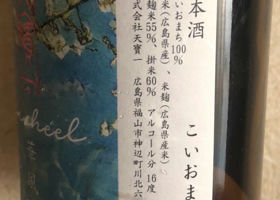 本酒
こいおまち100%
米(広島県産)、米麹(広島県産米)
麹米55%、掛米60% アルコール分 16度
式会社天寶一 広島県福山市神辺町川北六
こいおま
heel